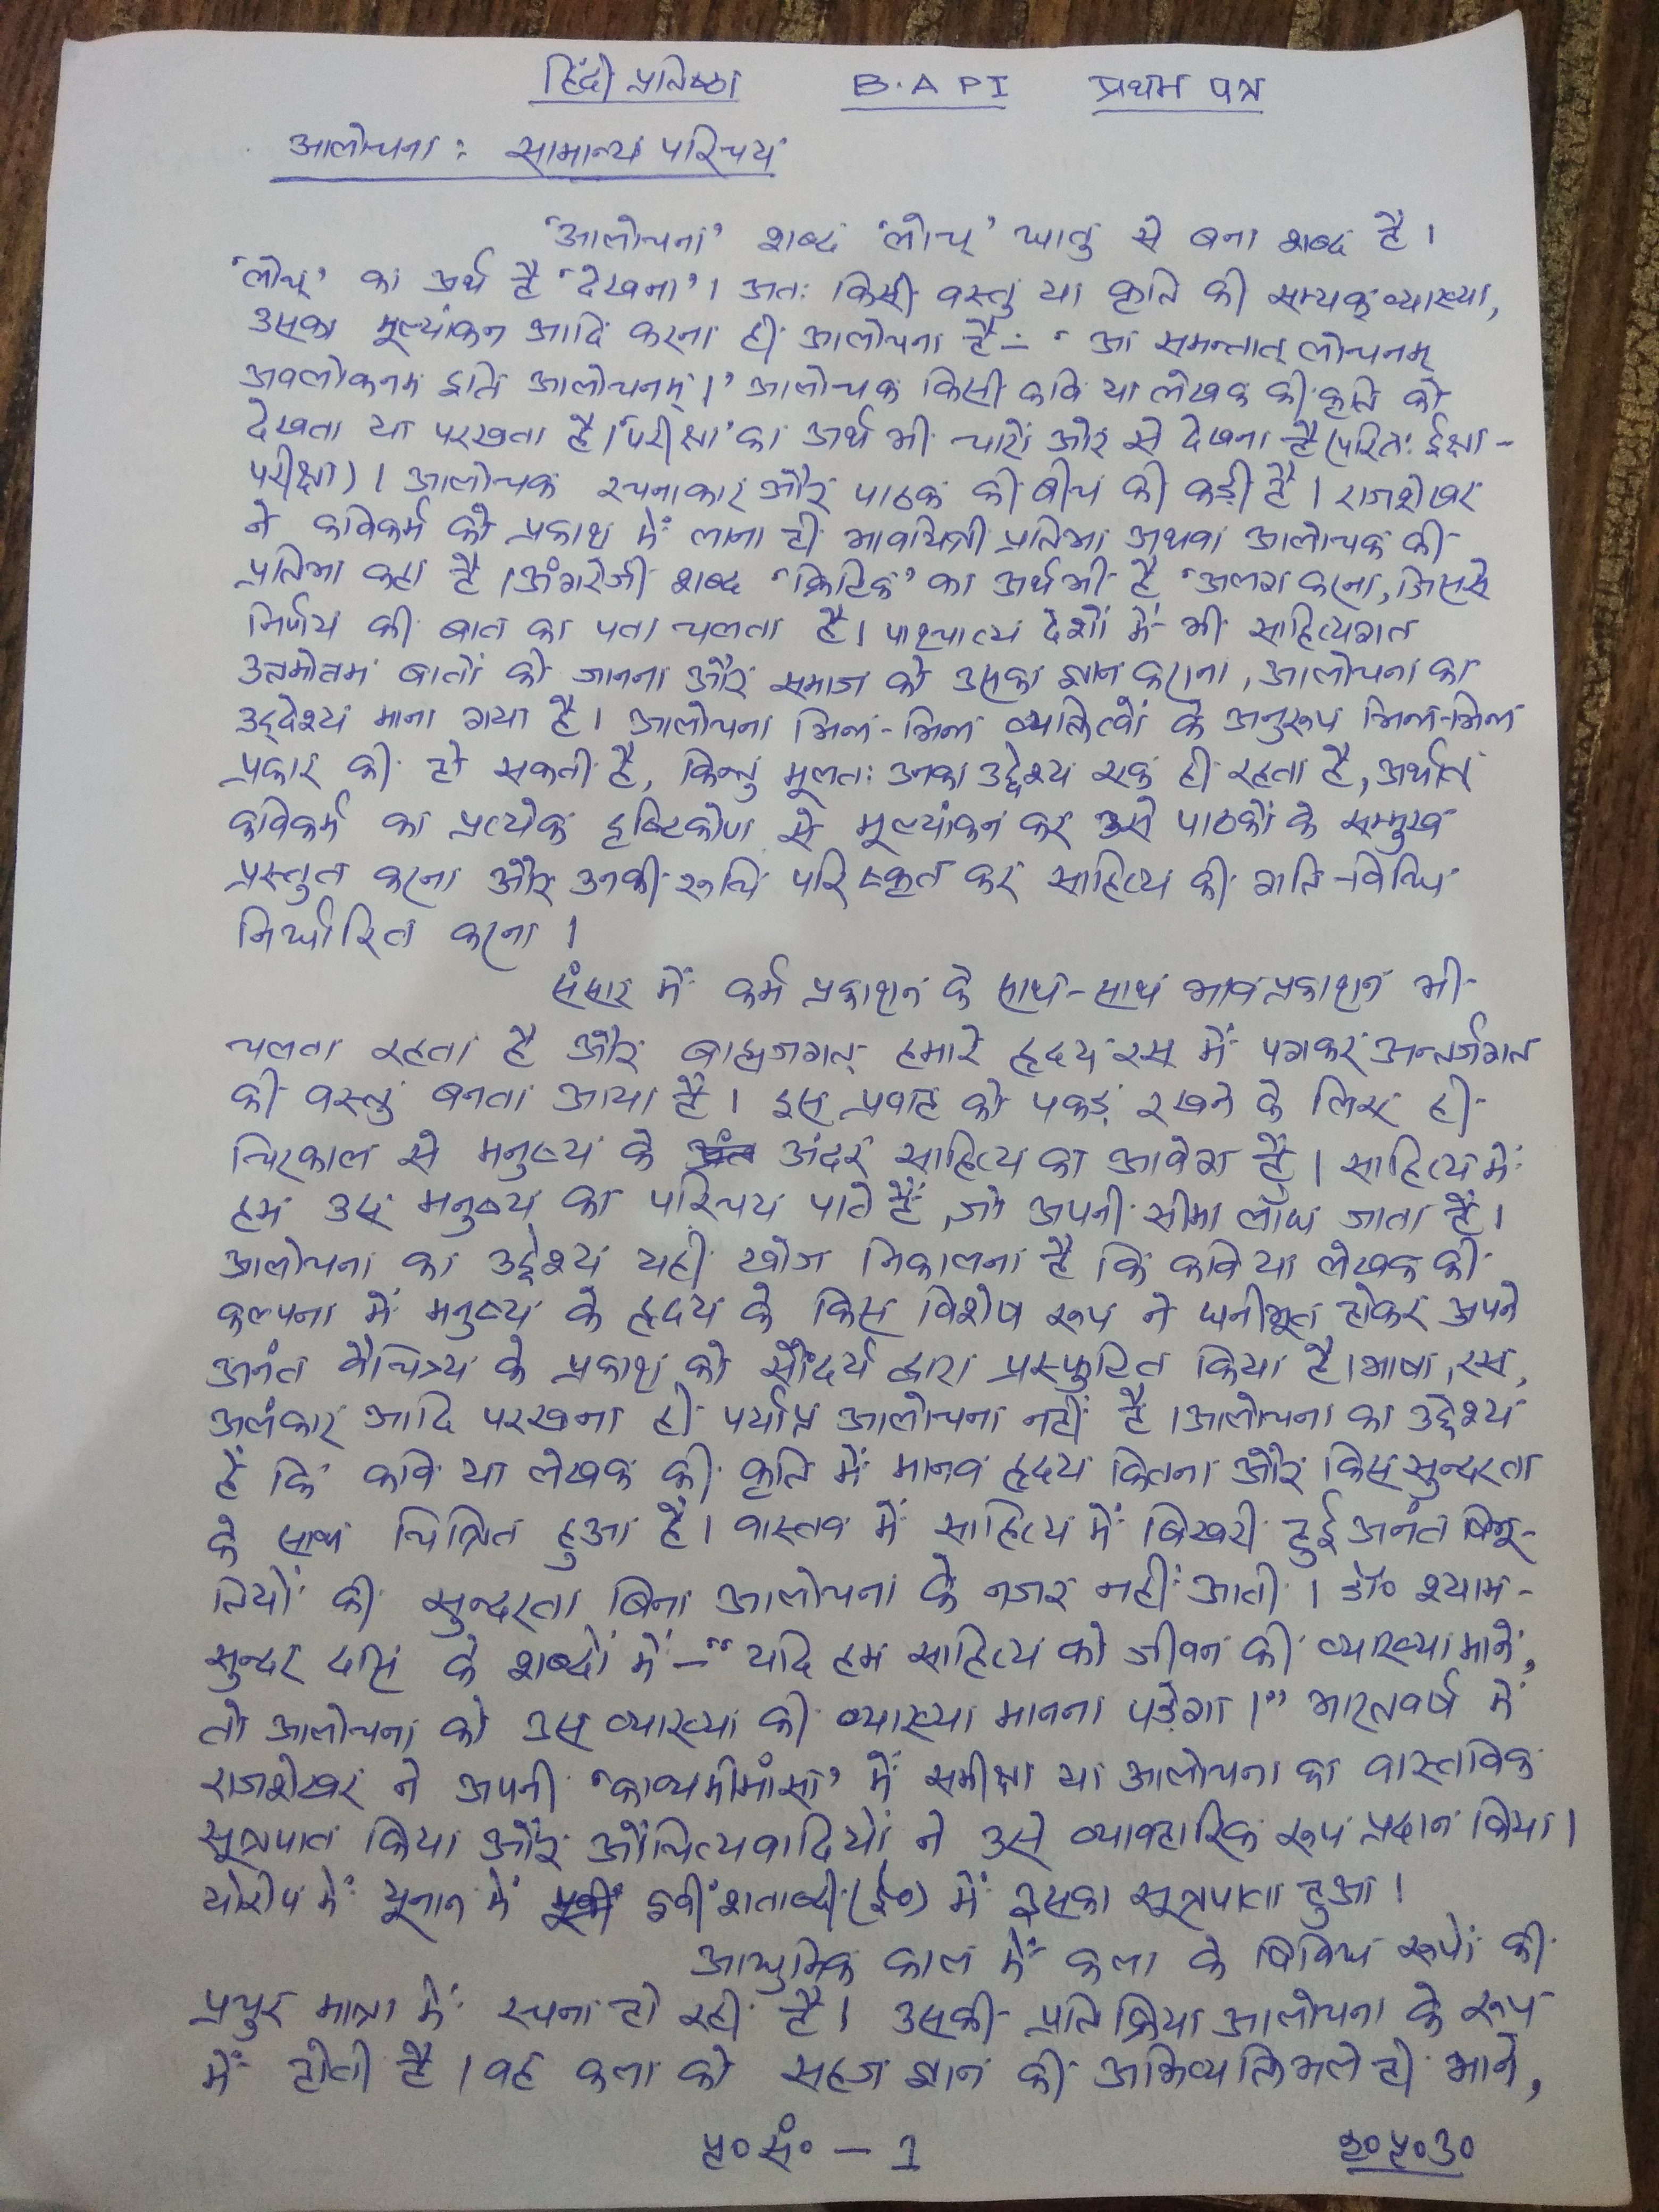 हिंदी प्रतिष्ठा B.A P I प्रथम पत्र
आलोचना : सामान्य परिचय
'आलोचना' शब्द 'लोच्' धातु से बना शब्द है।
'लोच्' का अर्थ है 'देखना'। अतः किसी वस्तु या कृति की सम्यक् व्याख्या,
उसका मूल्यांकन आदि करना ही आलोचना है – 'आ समन्तात् लोचनम्
अवलोकनम इति आलोचनम्।' आलोचक किसी कवि या लेखक की कृति को
देखता या परखता है। 'परीक्षा' का अर्थ भी चारों ओर से देखना है (परितः ईक्षा-
परीक्षा)। आलोचक रचनाकार और पाठक की बीच की कड़ी है। राजशेखर
ने कविकर्म को प्रकाश में लाना ही भावयित्री प्रतिभा अथवा आलोचक की
प्रतिभा कहा है। अंगरेजी शब्द 'क्रिटिक' का अर्थ भी है 'अलग करना, जिससे
निर्णय की बात का पता चलता है। पाश्चात्य देशों में भी साहित्यगत
उत्तमोत्तम बातों को जानना और समाज को उसका ज्ञान कराना, आलोचना का
उद्देश्य माना गया है। आलोचना भिन्न-भिन्न व्यक्तित्वों के अनुरूप भिन्न-भिन्न
प्रकार की हो सकती है, किन्तु मूलतः उनका उद्देश्य एक ही रहता है, अर्थात्
कविकर्म का प्रत्येक दृष्टिकोण से मूल्यांकन कर उसे पाठकों के सम्मुख
प्रस्तुत करना और उनकी रूचि परिष्कृत कर साहित्य की गति-विधि
निर्धारित करना।
संसार में कर्म प्रकाशन के साथ-साथ भावप्रकाशन भी
चलता रहता है और बाह्यजगत् हमारे हृदय रस में पगकर अन्तर्जगत
की वस्तु बनता आया है। इस प्रवाह को पकड़ रखने के लिए ही
चिरकाल से मनुष्य के अंदर साहित्य का आवेग है। साहित्य में
हम उस मनुष्य का परिचय पाते हैं, जो अपनी सीमा लाँघ जाता है।
आलोचना का उद्देश्य यही खोज निकालना है कि कवि या लेखक की
कल्पना में मनुष्य के हृदय के किस विशेष रूप ने घनीभूत होकर अपने
अनंत वैचित्र्य के प्रकाश को सौंदर्य द्वारा प्रस्फुटित किया है। भाषा, रस,
अलंकार आदि परखना ही पर्याप्त आलोचना नहीं है। आलोचना का उद्देश्य
है कि कवि या लेखक की कृति में मानव हृदय कितना और किस सुन्दरता
के साथ चित्रित हुआ है। वास्तव में साहित्य में बिखरी हुई अनंत विभू-
तियों की सुन्दरता बिना आलोचना के नजर नहीं आती। डॉ० श्याम-
सुन्दर दास के शब्दों में – "यदि हम साहित्य को जीवन की व्याख्या माने,
तो आलोचना को उस व्याख्या की व्याख्या मानना पड़ेगा।" भारतवर्ष में
राजशेखर ने अपनी 'काव्यमीमांसा' में समीक्षा या आलोचना का वास्तविक
सूत्रपात किया और औचित्यवादियों ने उसे व्यावहारिक रूप प्रदान किया।
योरोप में यूनान में शताब्दी (ई०) में इसका सूत्रपात हुआ।
आधुनिक काल में कला के विविध रूपों की
प्रचुर मात्रा में रचना हो रही है। उसकी प्रतिक्रिया आलोचना के रूप
में होती है। वह कला को सहज ज्ञान की अभिव्यक्ति भले ही माने,
पृ० सं० – 1